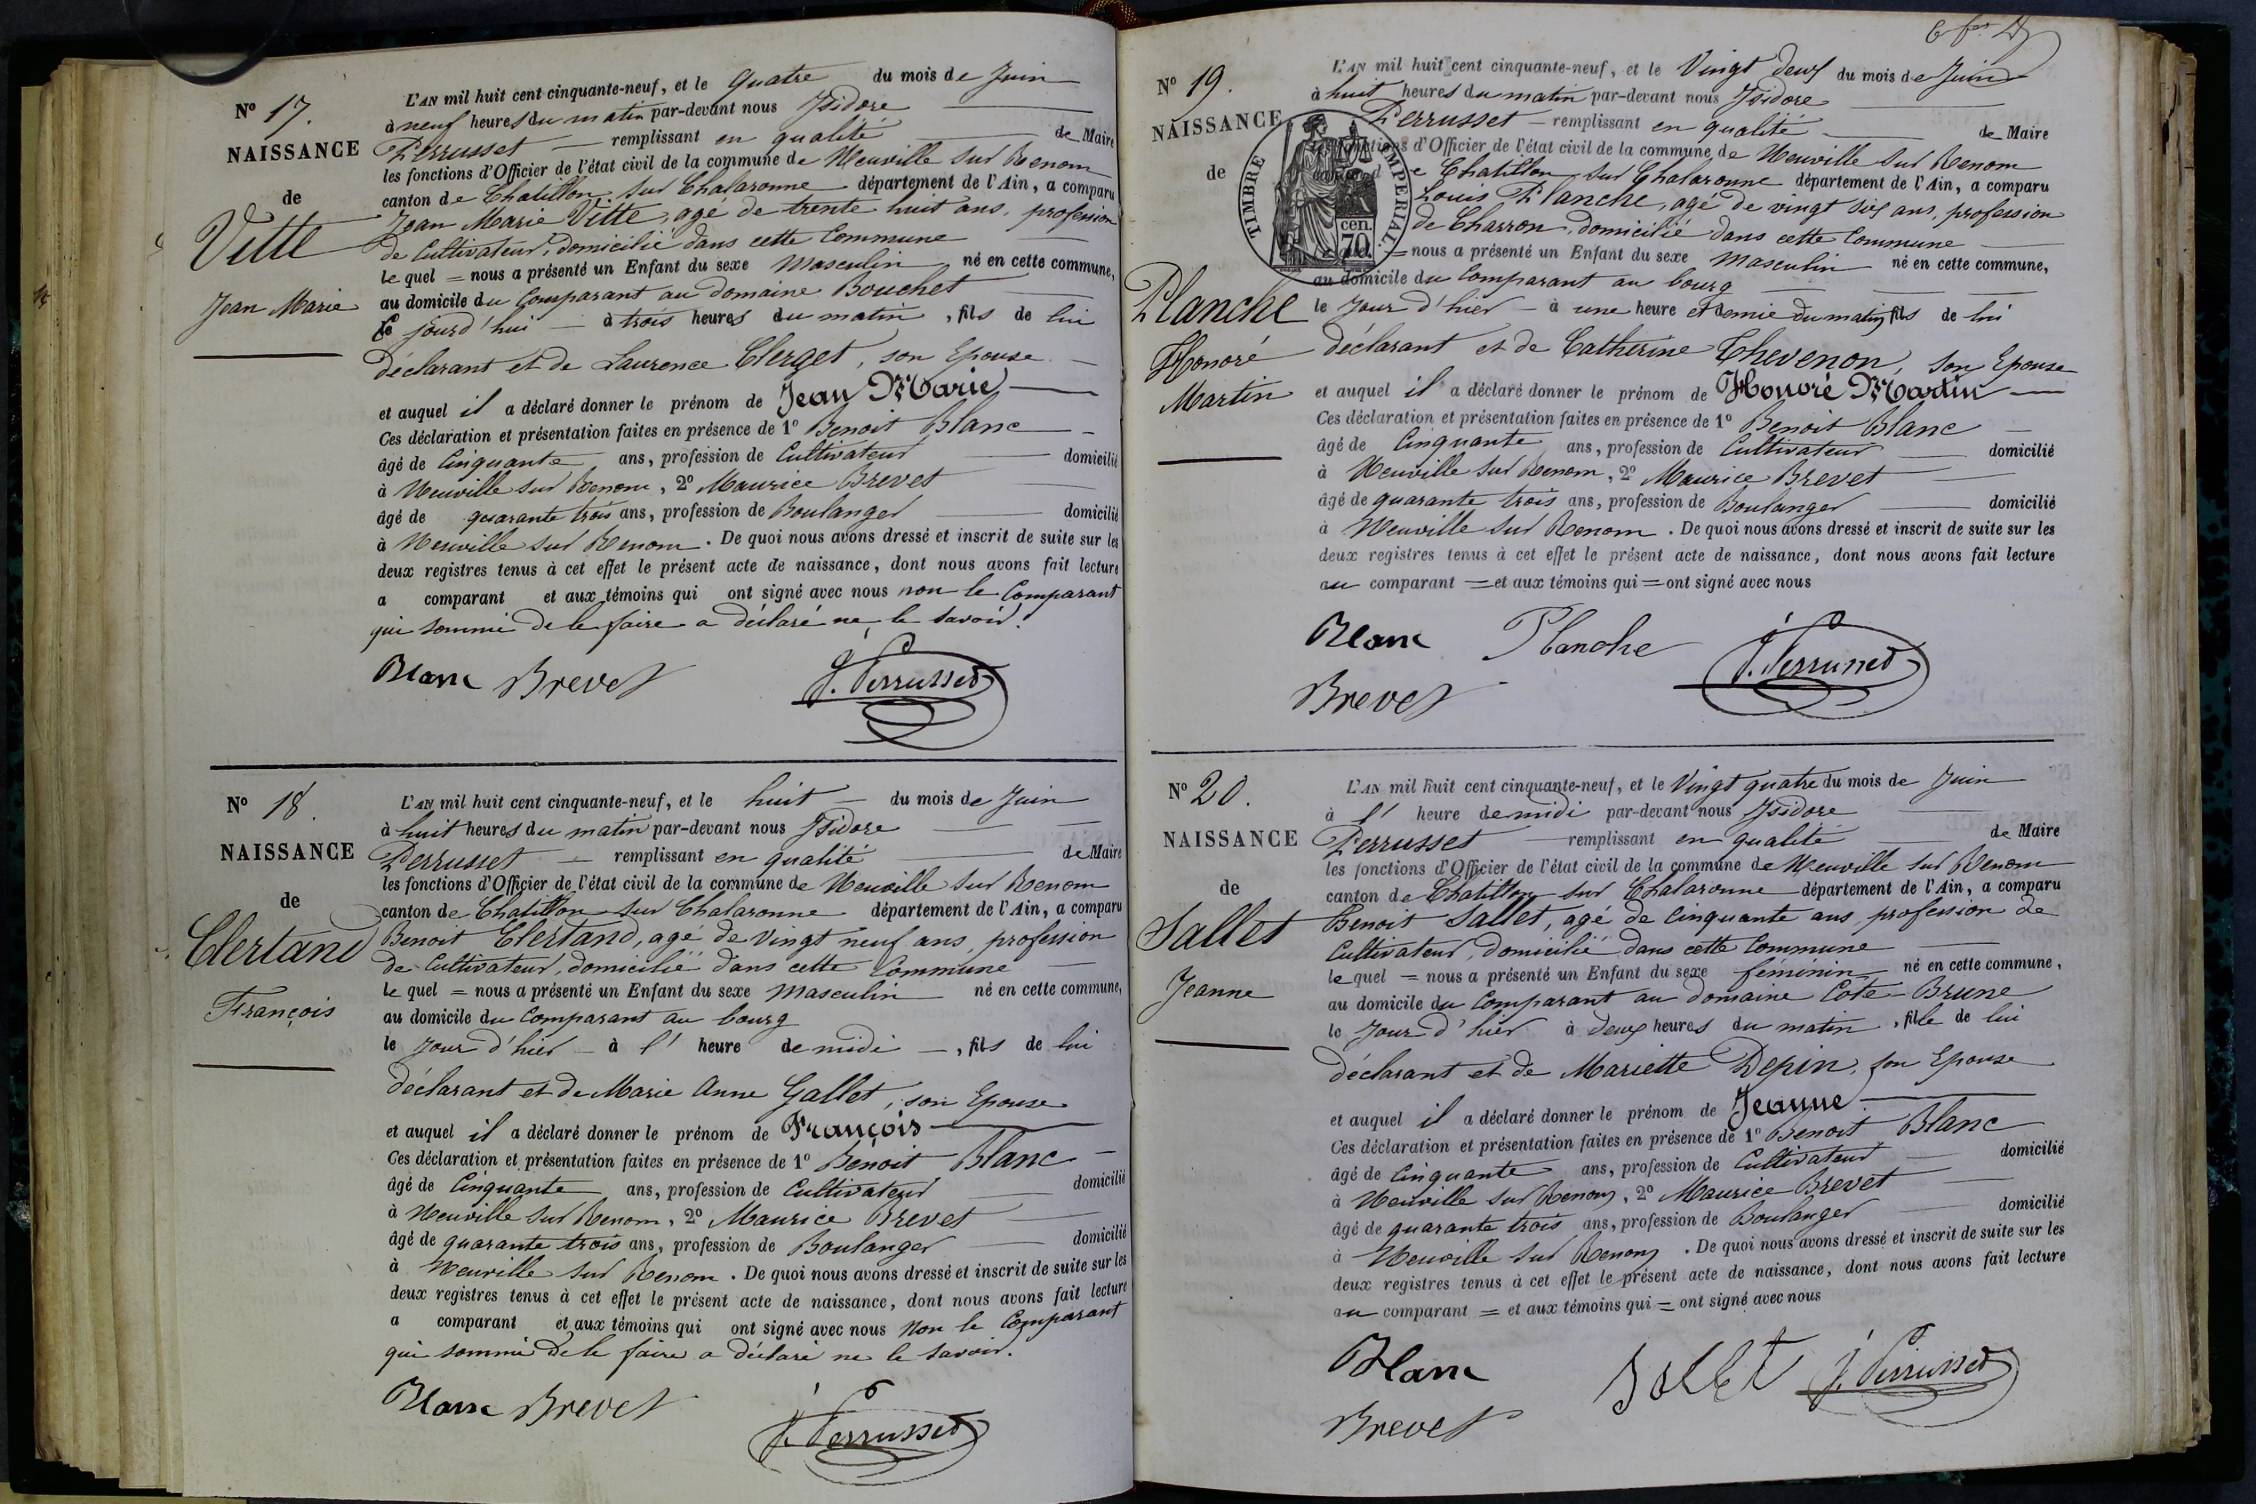 Nº 17.
NAISSANCE
de
Vitte
Jean Marie
L'AN mil huit cent cinquante-neuf, et le quatre du mois de Juin
à neuf heures du matin par-devant nous Isidore
Perrusset remplissant en qualité de Maire
les fonctions d'Officier de l'état civil de la commune de Neuville sur Renom
canton de Chatillon sur Chalaronne département de l'Ain, a comparu
Jean Marie Vitte, agé de trente huit ans, profession
de Cultivateur, domicilié dans cette Commune
le quel = nous a présenté un Enfant du sexe Masculin né en cette commune,
au domicile du Comparant au domaine Bouchet
ce jourd'hui à trois heures du matin, fils de lui
déclarant et de Laurence Clerget, son Epouse
et auquel il a déclaré donner le prénom de Jean Marie
Ces déclaration et présentation faites en présence de 1º Benoit Blanc
âgé de Cinquante ans, profession de Cultivateur domicilié
à Neuville sur Renom, 2º Maurice Brevet
âgé de quarante trois ans, profession de Boulanger domicilié
à Neuville sur Renom. De quoi nous avons dressé et inscrit de suite sur les
deux registres tenus à cet effet le présent acte de naissance, dont nous avons fait lecture
a comparant et aux témoins qui ont signé avec nous non le Comparant
qui sommé de le faire a déclaré ne le savoir.
Blanc Brevet J. Perrusset
Nº 18.
NAISSANCE
de
Clertand
François
L'AN mil huit cent cinquante-neuf, et le huit du mois de Juin
à huit heures du matin par-devant nous Isidore
Perrusset remplissant en qualité de Maire
les fonctions d'Officier de l'état civil de la commune de Neuville sur Renom
canton de Chatillon sur Chalaronne département de l'Ain, a comparu
Benoit Clertand, agé de vingt neuf ans, profession
de Cultivateur, domicilié dans cette Commune
le quel = nous a présenté un Enfant du sexe Masculin né en cette commune,
au domicile du Comparant au bourg
le jour d'hier à l' heure de midi, fils de lui
déclarant et de Marie Anne Gallet, son Epouse
et auquel il a déclaré donner le prénom de François
Ces déclaration et présentation faites en présence de 1º Benoit Blanc
âgé de Cinquante ans, profession de Cultivateur domicilié
à Neuville sur Renom, 2º Maurice Brevet
âgé de quarante trois ans, profession de Boulanger domicilié
à Neuville sur Renom. De quoi nous avons dressé et inscrit de suite sur les
deux registres tenus à cet effet le présent acte de naissance, dont nous avons fait lecture
a comparant et aux témoins qui ont signé avec nous Non le Comparant
qui sommé de le faire a déclaré ne le savoir.
Blanc Brevet J. Perrusset
Nº 19.
NAISSANCE
de
Planche
Honoré
Martin
TIMBRE IMPERIAL
70 cen.
L'AN mil huit cent cinquante-neuf, et le Vingt deux du mois de Juin
à huit heures du matin par-devant nous Isidore
Perrusset remplissant en qualité de Maire
d'Officier de l'état civil de la commune de Neuville sur Renom
de Chatillon sur Chalaronne département de l'Ain, a comparu
Louis Planche, agé de vingt six ans, profession
de Charron, domicilié dans cette Commune
= nous a présenté un Enfant du sexe Masculin né en cette commune,
au domicile du Comparant au bourg
le jour d'hier à une heure et demie du matin, fils de lui
déclarant et de Catherine Thevenon, son Epouse
et auquel il a déclaré donner le prénom de Honoré Martin
Ces déclaration et présentation faites en présence de 1º Benoit Blanc
âgé de Cinquante ans, profession de Cultivateur domicilié
à Neuville sur Renom, 2º Maurice Brevet
âgé de quarante trois ans, profession de Boulanger domicilié
à Neuville sur Renom. De quoi nous avons dressé et inscrit de suite sur les
deux registres tenus à cet effet le présent acte de naissance, dont nous avons fait lecture
au comparant = et aux témoins qui = ont signé avec nous
Blanc Planche J. Perrusset
Brevet
Nº 20.
NAISSANCE
de
Sallet
Jeanne
L'AN mil huit cent cinquante-neuf, et le Vingt quatre du mois de Juin
à l' heure de midi par-devant nous Isidore
Perrusset remplissant en qualité de Maire
les fonctions d'Officier de l'état civil de la commune de Neuville sur Renom
canton de Chatillon sur Chalaronne département de l'Ain, a comparu
Benoit Sallet, agé de Cinquante ans, profession de
Cultivateur, domicilié dans cette Commune
le quel = nous a présenté un Enfant du sexe féminin né en cette commune,
au domicile du Comparant au domaine Cote-Brune
le jour d'hier à deux heures du matin, fille de lui
déclarant et de Mariette Depin, son Epouse
et auquel il a déclaré donner le prénom de Jeanne
Ces déclaration et présentation faites en présence de 1º Benoit Blanc
âgé de Cinquante ans, profession de Cultivateur domicilié
à Neuville sur Renom, 2º Maurice Brevet
âgé de quarante trois ans, profession de Boulanger domicilié
à Neuville sur Renom. De quoi nous avons dressé et inscrit de suite sur les
deux registres tenus à cet effet le présent acte de naissance, dont nous avons fait lecture
au comparant = et aux témoins qui = ont signé avec nous
Blanc Sallet J. Perrusset
Brevet